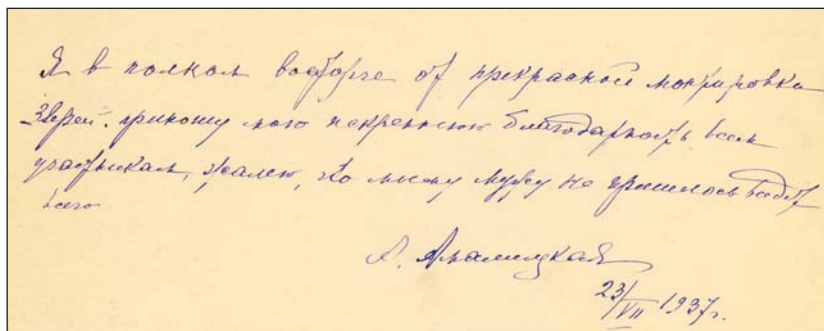 Я в полном восторге от прекрасной монтировки
зверей. приношу мою искреннюю благодарность всем
участникам, жалею, что моему мужу не пришлось видеть
всего
А.
23/VII 1937г.